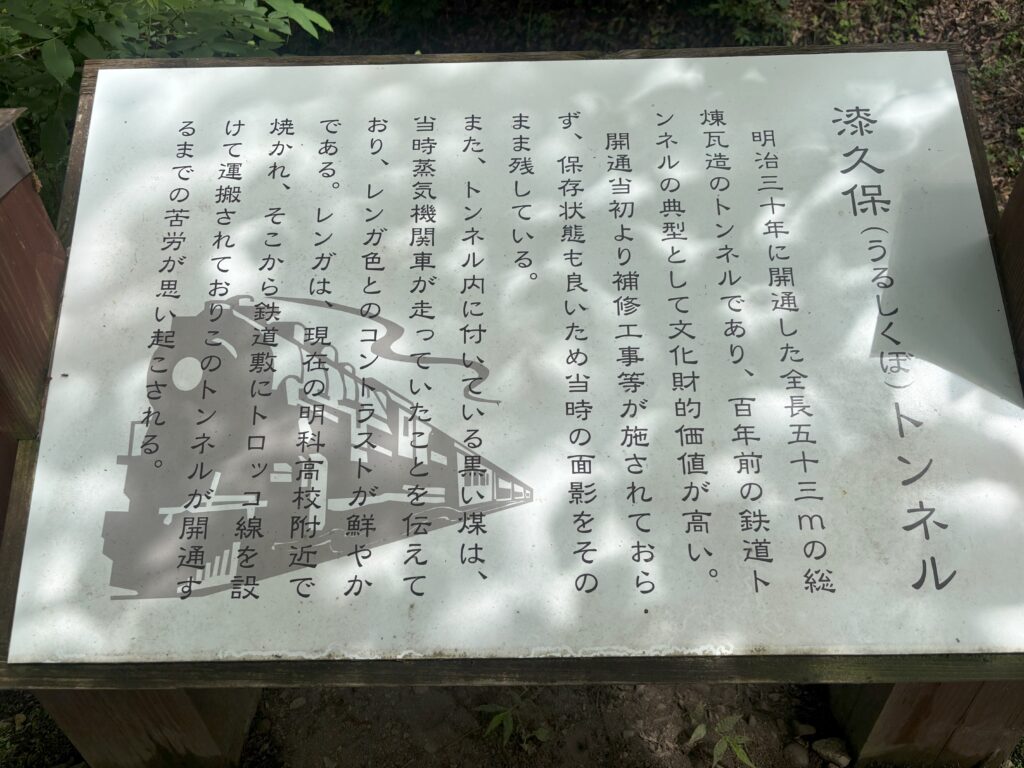 漆久保(うるしくぼ)トンネル
明治三十年に開通した全長五十三mの総
煉瓦造のトンネルであり、百年前の鉄道ト
ンネルの典型として文化財的価値が高い。
開通当初より補修工事等が施されておら
ず、保存状態も良いため当時の面影をその
まま残している。
また、トンネル内に付いている黒い煤は、
当時蒸気機関車が走っていたことを伝えて
おり、レンガ色とのコントラストが鮮やか
である。レンガは、現在の明科高校附近で
焼かれ、そこから鉄道敷にトロッコ線を設
けて運搬されておりこのトンネルが開通す
るまでの苦労が思い起こされる。